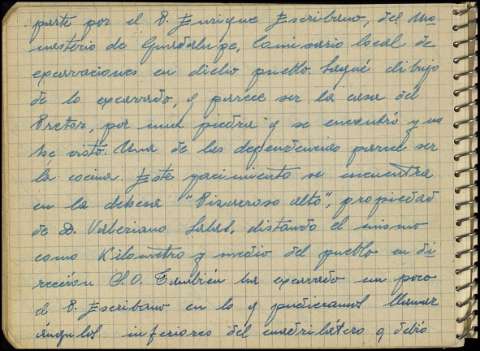 parte por el P. Enrique Escribano, del Mo-
nasterio de Guadalupe, Comisario local de
excavaciones en dicho pueblo. Saqué dibujo
de lo excavado, y parece ser la casa del
Pretor, por una piedra q se encontró y no
he visto. Una de las dependencias parece ser
la cocina. Este yacimiento se encuentra
en la dehesa " alto", propiedad
de D. Valeriano, distando el mismo
como Kilometro y medio del pueblo en di-
rección S.O. También ha excavado un poco
el P. Escribano en lo q pudieramos llamar
ángulos inferiores del cuadrilátero q debió